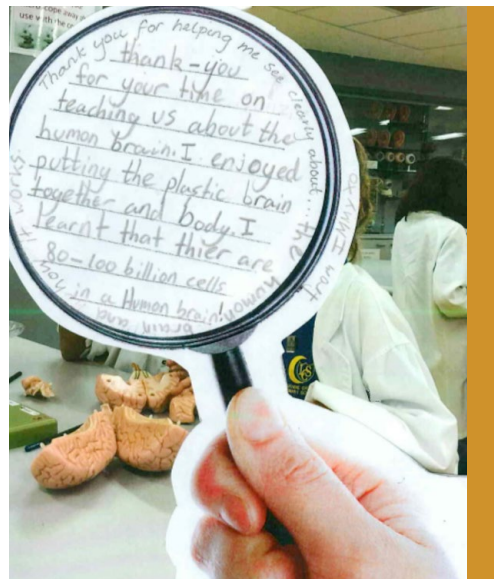 Thank you for helping me see clearly about... the human brain and how it works.
thank-you
for your time on
teaching us about the
human brain. I enjoyed
putting the plastic brain
together and body. I
learnt that thier are
80-100 billion cells
in a Human brain!
use with the